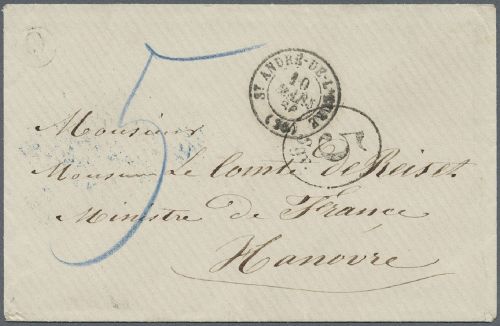 5
ST ANDRÉ-DE-L'EURE
10
MARS
(26)
5
Monsieur
Monsieur Le Comte de Reiset
Ministre de France
Hanovre